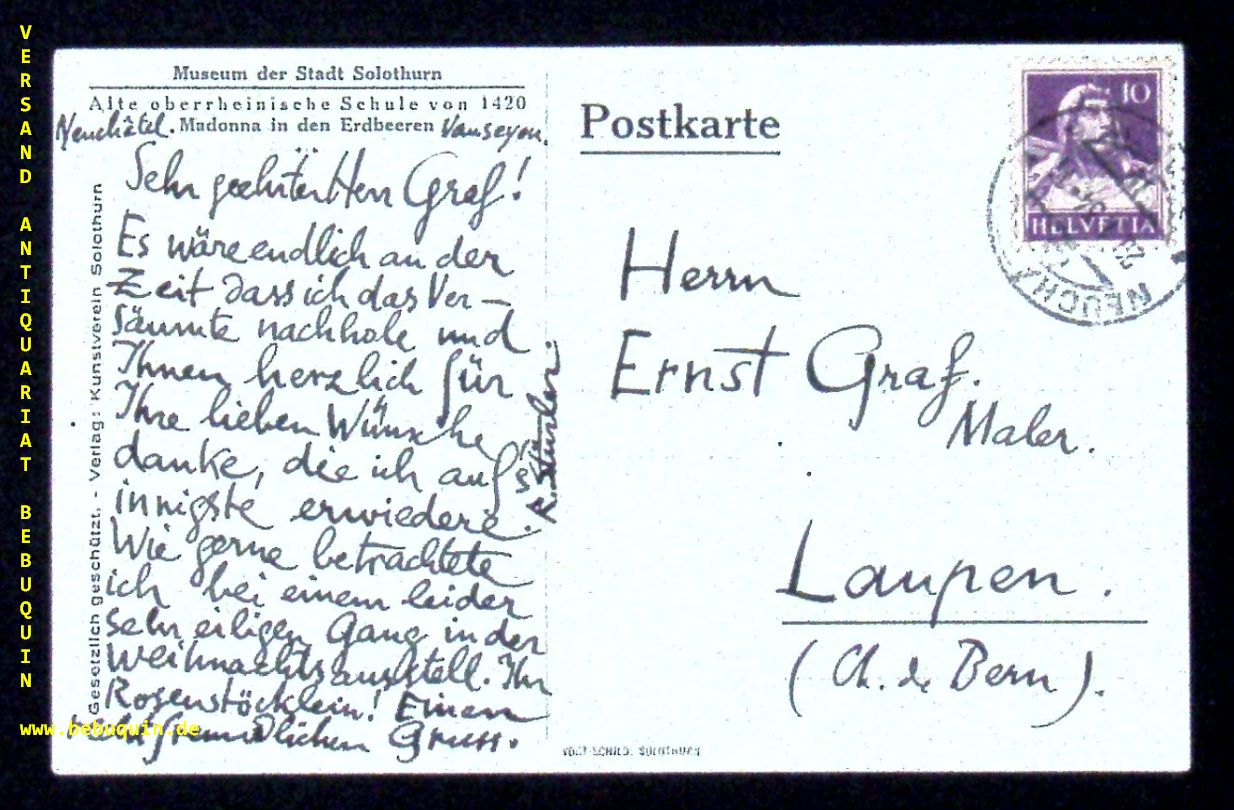 VERSAND ANTIQUARIAT BEBUQUIN
www.bebuquin.de
Museum der Stadt Solothurn
Alte oberrheinische Schule von 1420
Madonna in den Erdbeeren
Neuchâtel. Vauseyon.
Sehr geehrter Herr Graf!
Es wäre endlich an der
Zeit dass ich das Ver-
säumte nachhole und
Ihnen herzlich für
Ihre lieben Wünsche
danke, die ich auf's
innigste erwiedere.
Wie gerne betrachtete
ich bei einem leider
sehr eiligen Gang in der
Weihnachtsausstell. Ihr
Rosenstöcklein! Einen
recht freundlichen Gruss.
R. Stürler.
Gesetzlich geschützt. - Verlag: Kunstverein Solothurn
Postkarte
10
HELVETIA
NEUCH
Herrn
Ernst Graf.
Maler.
Laupen.
(Ct. de Bern).
VOGT-SCHILD, SOLOTHURN